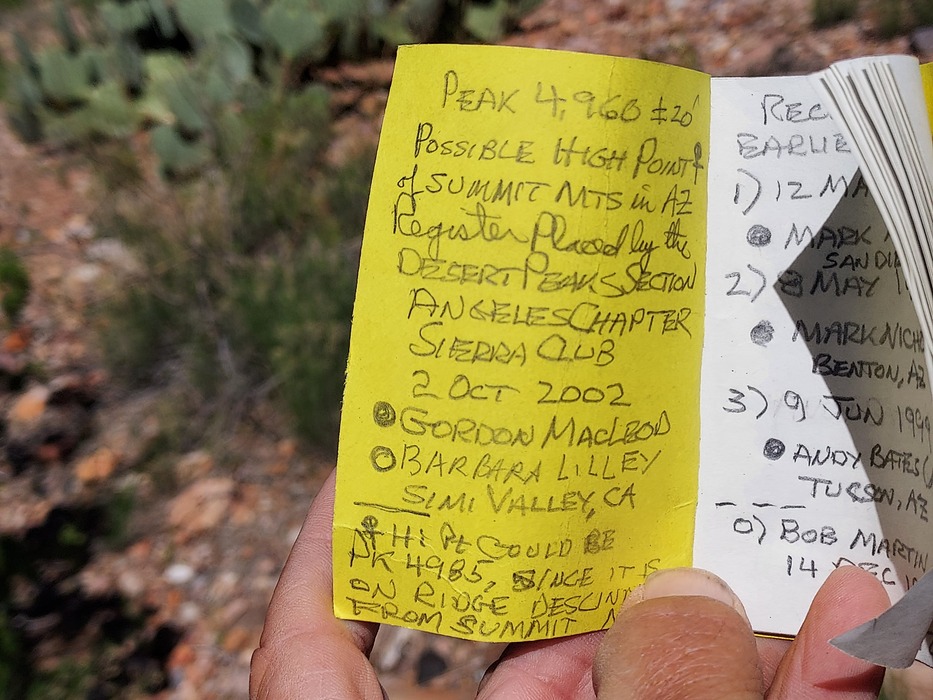 PEAK 4,960 ±20'
POSSIBLE HIGH POINT
of SUMMIT MTS in AZ
Register Placed by the
DESERT PEAKS SECTION
ANGELES CHAPTER
SIERRA CLUB
2 OCT 2002
GORDON MACLEOD
BARBARA LILLEY
SIMI VALLEY, CA
HI PT COULD BE
PK 4985, SINCE IT IS
ON RIDGE
FROM SUMMIT
1) 12
MARK
2) 8 MAY
MARK
BENTON, AZ
3) 9 JUN 1999
ANDY BATES
TUCSON, AZ
0) BOB MARTIN
14 DEC